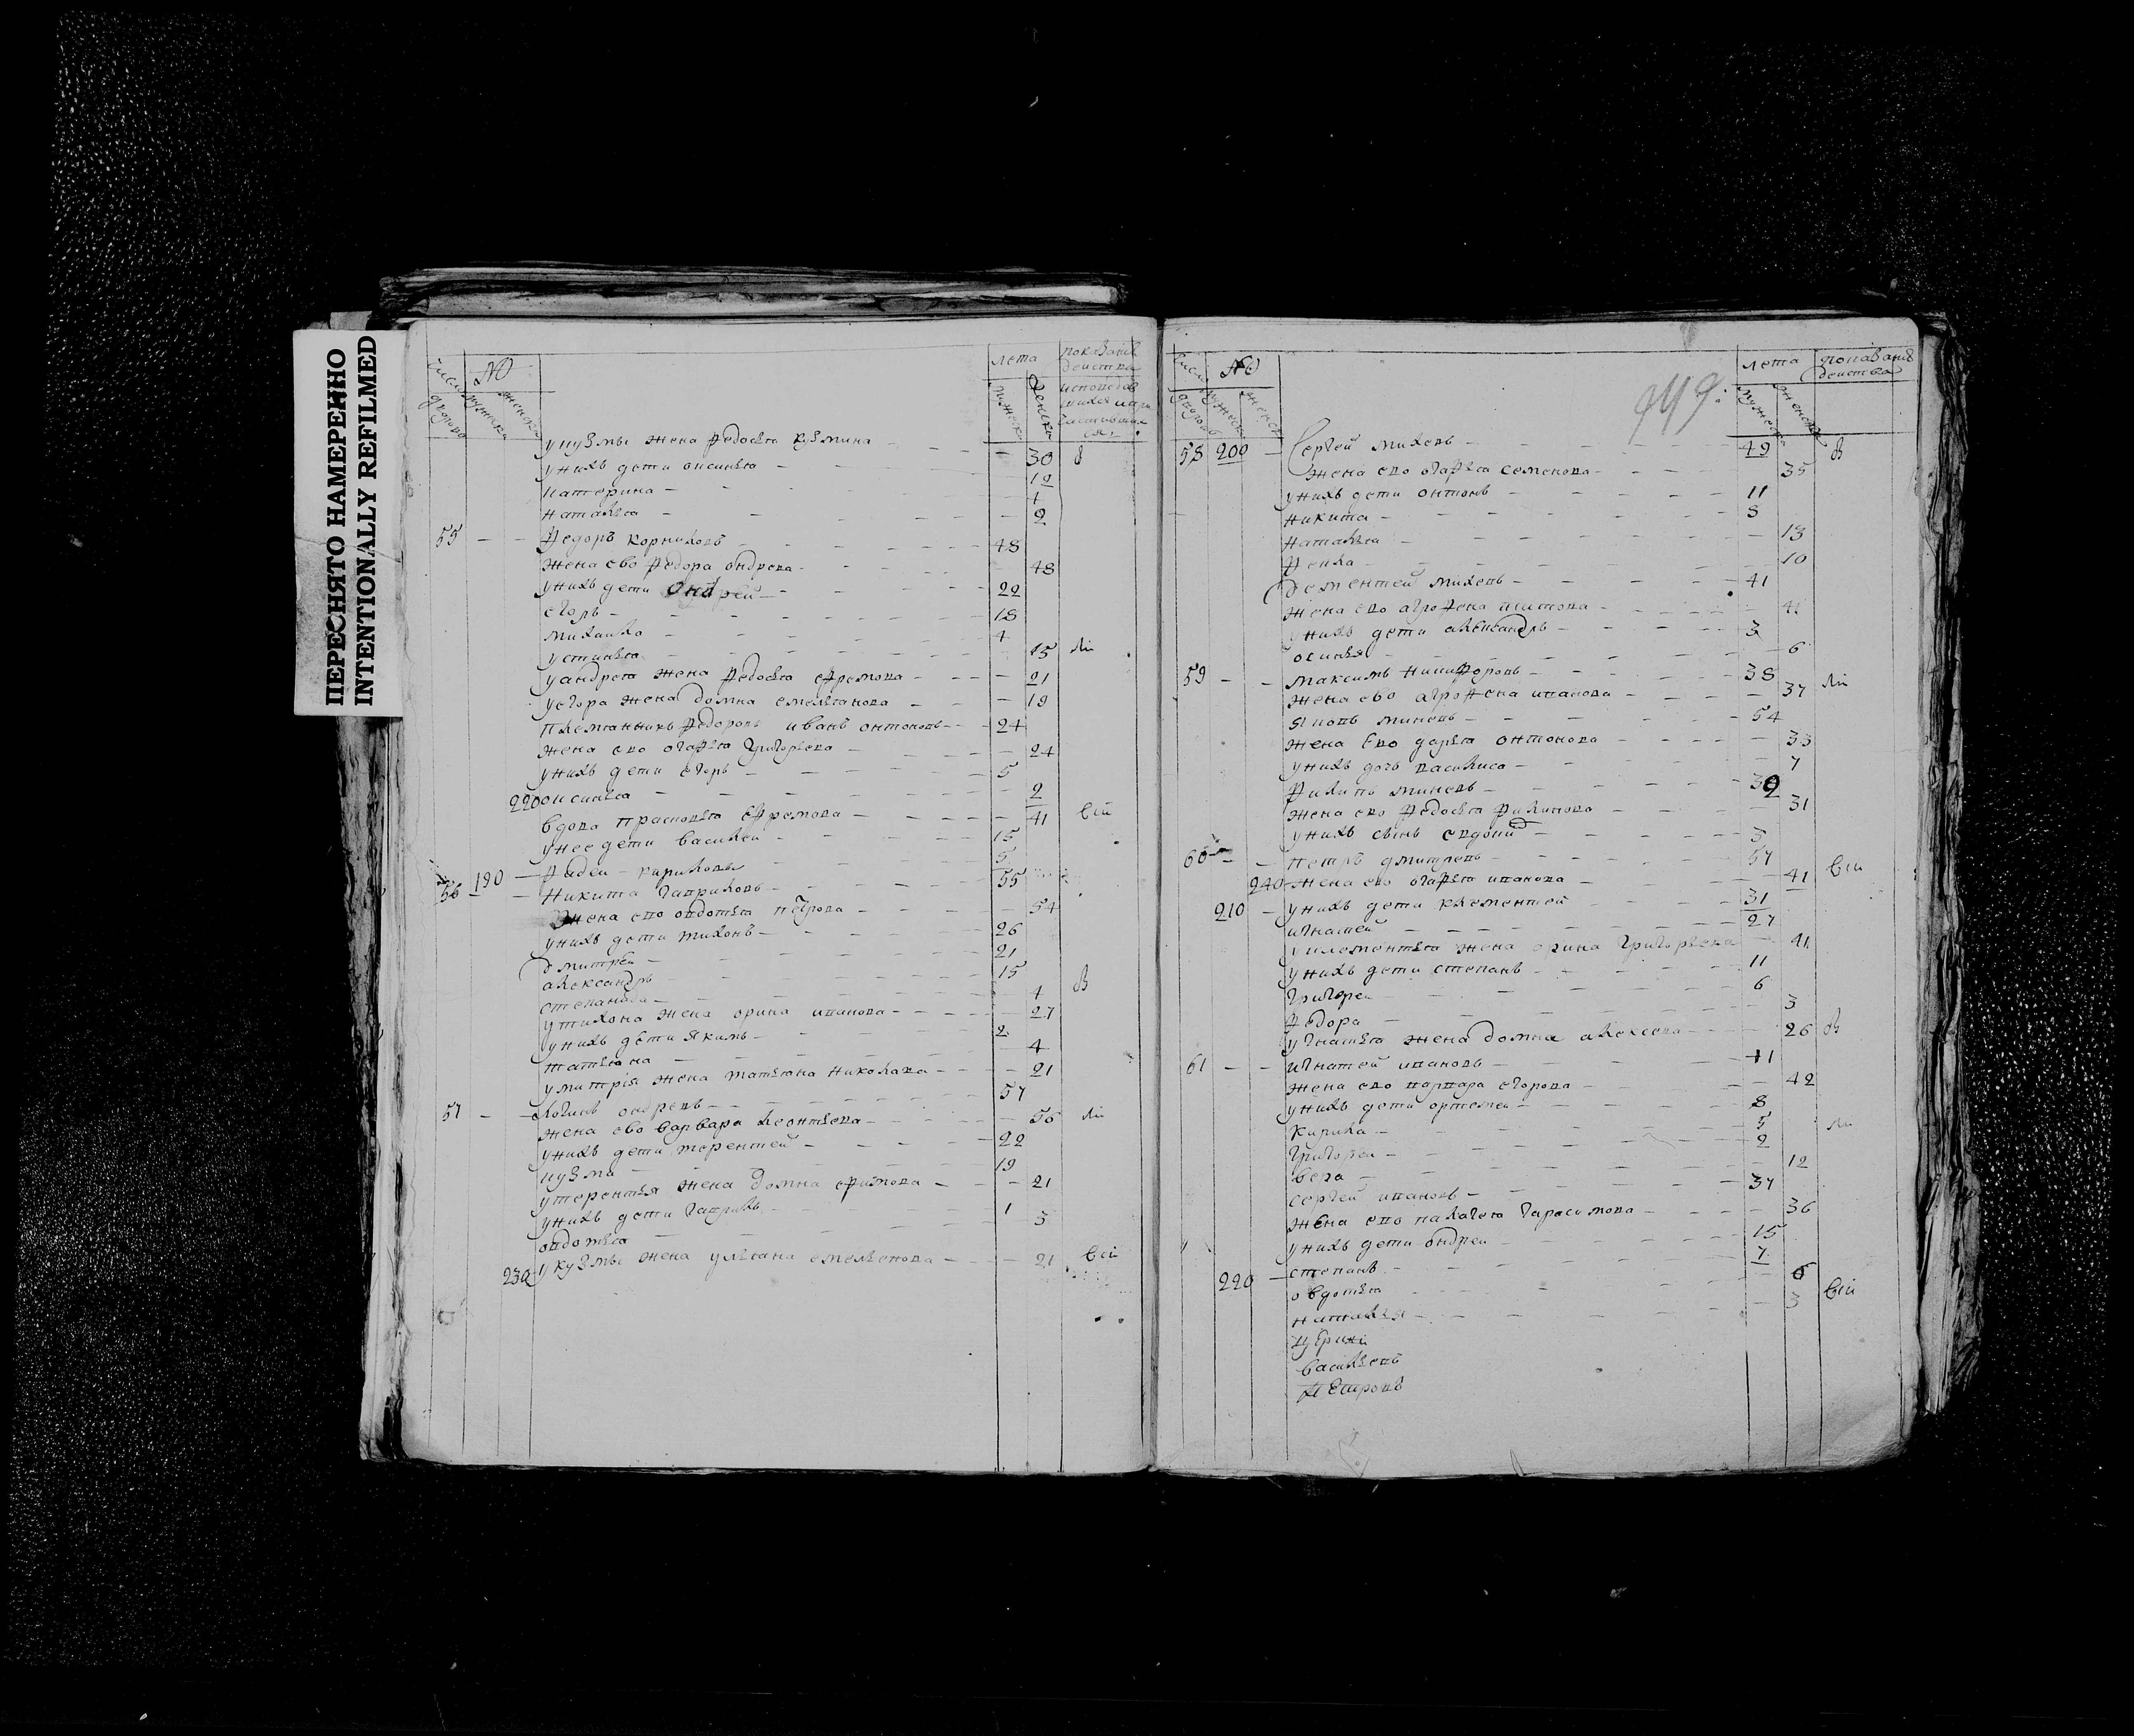 ПЕРЕСНЯТО НАМЕРЕННО
INTENTIONALLY REFILMED
число дворовъ № мужеска женска лета мужеска женска показание действа
укузмы жена федосья кузмина 30
унихъ дети оксинья 12
катерина
наталья 2
55 Федоръ корниловъ 48
жена ево федора ондреева 48
унихъ дети Ондрей 22
егоръ 18
михаила 4
устинья 15
уандрея жена федосья ефремова 21
уегора жена домна емельянова 19
племянникъ федоровъ иванъ онтоновъ 24
жена ево огафья григорьева 24
унихъ дети егоръ 5
220 оксинья 2
вдова прасковья ефремова 41
унее дети василей 15
190 Фадеи кириловы 5
56 Никита гавриловъ 55
жена ево овдотья петрова 54
унихъ дети тихонъ 26
дмитрей 21
александръ 15
степанида 4
утихона жена орина иванова 27
унихъ дети якимъ 2
татьяна 4
умитрия жена татьяна николаева 21
57 логинъ ондревъ 57
жена ево варвара леонтьева 56
унихъ дети терентей 22
кузма 19
утерентья жена домна ефимова 21
унихъ дети гаврилъ 1
овдотья 3
230 укузмы жена ульяна емельянова 21
919
число дворовъ № мужеска женска лета мужеска женска показание действа
58 200 Сергей михевъ 49
жена ево огафья семенова 35
унихъ дети онтонъ 11
никита 8
наталья 13
фекла 10
дементей михевъ 41
жена ево агрофена титова 41
унихъ дети александръ 3
осинья 6
59 максимъ никифоровъ 38
жена ево агрофена иванова 37
яковъ миневъ 54
жена ево дарья онтонова 33
унихъ дочь василиса 7
филипъ миневъ
жена ево федосья филипова 31
унихъ сынъ евдоким 3
60 петръ дмитревъ 57
240 жена ево огафья иванова 41
210 унихъ дети клементей 31
игнатей 27
уклементья жена орина григорьева 41
унихъ дети степанъ 11
григореи 6
федора 3
уигнатья жена домна алексеева 26
61 игнатей ивановъ 41
жена ево варвара егорова 42
унихъ дети ортемеи 8
кирила 5
григореи 2
вера 12
сергей ивановъ 37
жена ево палагея гарасимова 36
унихъ дети ондреи 15
220 степанъ 7
овдотья 6
наталья 3
василевъ
петровъ